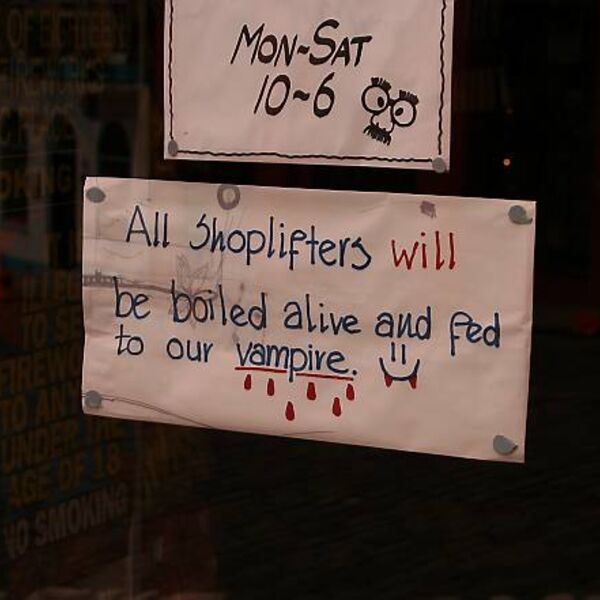 MON~SAT
10~6
All Shoplifters will
be boiled alive and fed
to our vampire.
OF EIGHTEEN
FIREWORKS
UNDER THE
AGE OF 18
NO SMOKING